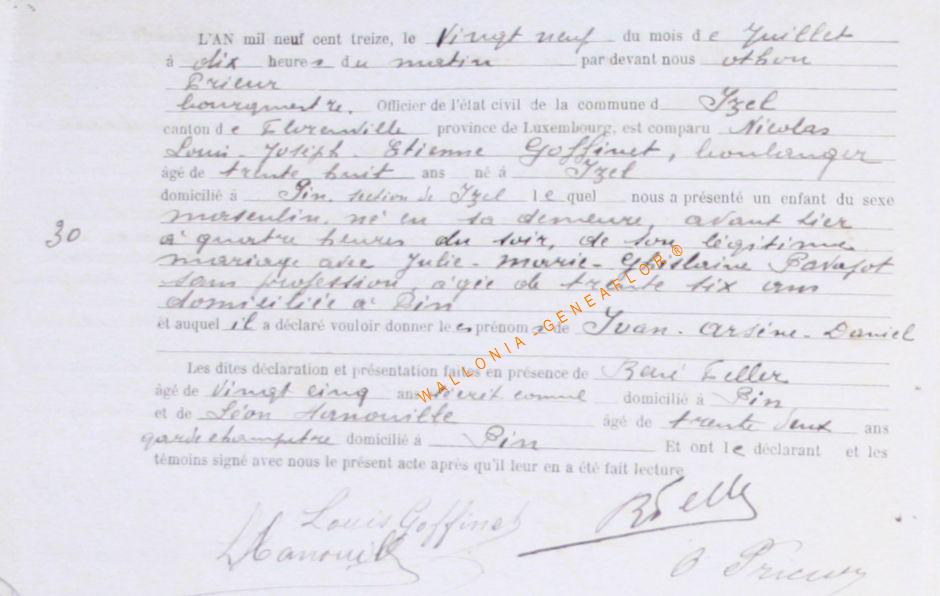 L'AN mil neuf cent treize, le Vingt neuf du mois de Juillet
à dix heures du matin par devant nous Othon
Prieur
bourgmestre. Officier de l'état civil de la commune d Izel
canton de Florenville province de Luxembourg, est comparu Nicolas
Louis-Joseph-Etienne Goffinet, boulanger
âgé de trente huit ans né à Izel
domicilié à Pin, section de Izel lequel nous a présenté un enfant du sexe
masculin, né en sa demeure, avant hier
30
à quatre heures du soir, de son légitime
mariage avec Julie-Marie-Ghislaine
sans profession, âgée de trente six ans
domiciliée à Pin
et auquel il a déclaré vouloir donner les prénoms de Yvan-Arsène-Daniel
Les dites déclaration et présentation faites en présence de René Feller
âgé de Vingt cinq ans domicilié à Pin
et de Léon Hanouille âgé de trente deux ans
garde champêtre domicilié à Pin Et ont le déclarant et les
témoins signé avec nous le présent acte après qu'il leur en a été fait lecture
Louis Goffinet
RFeller
LHanouille
O Prieur
WALLONIA-GENEAFLOR®